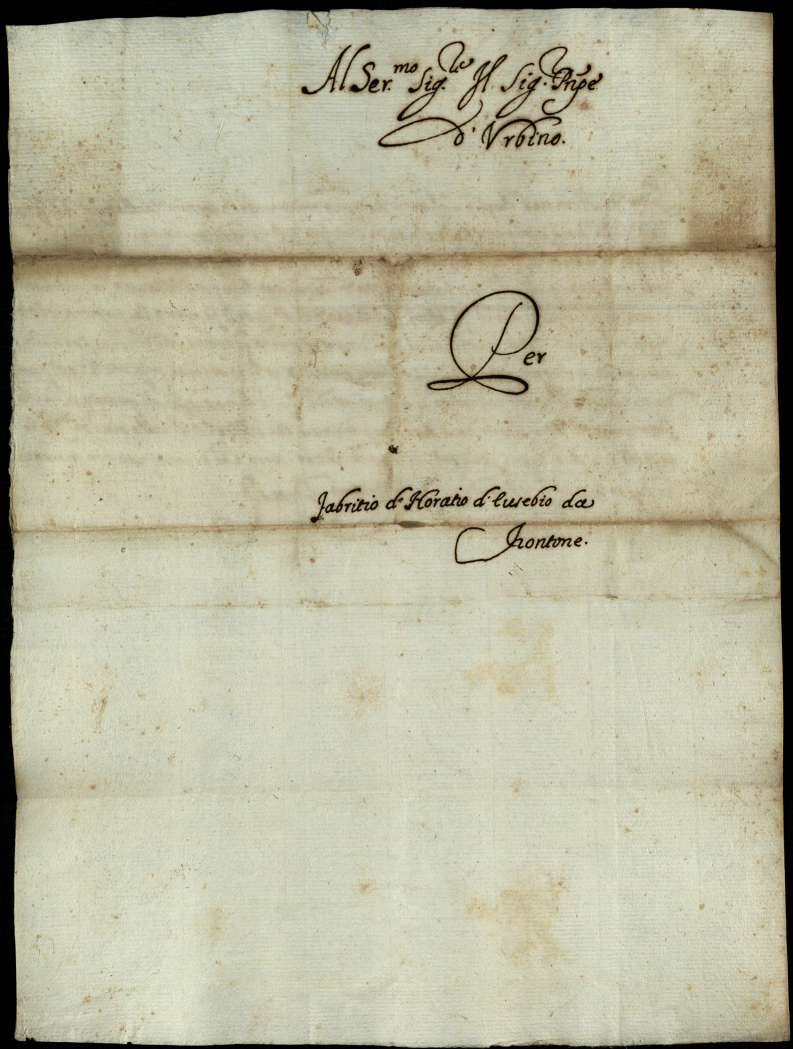 Al Ser.mo Sig.re Il Sig.r Prīpe
d' Vrbino.
Per
Fabritio d' Horatio d' Eusebio da
Frontone.